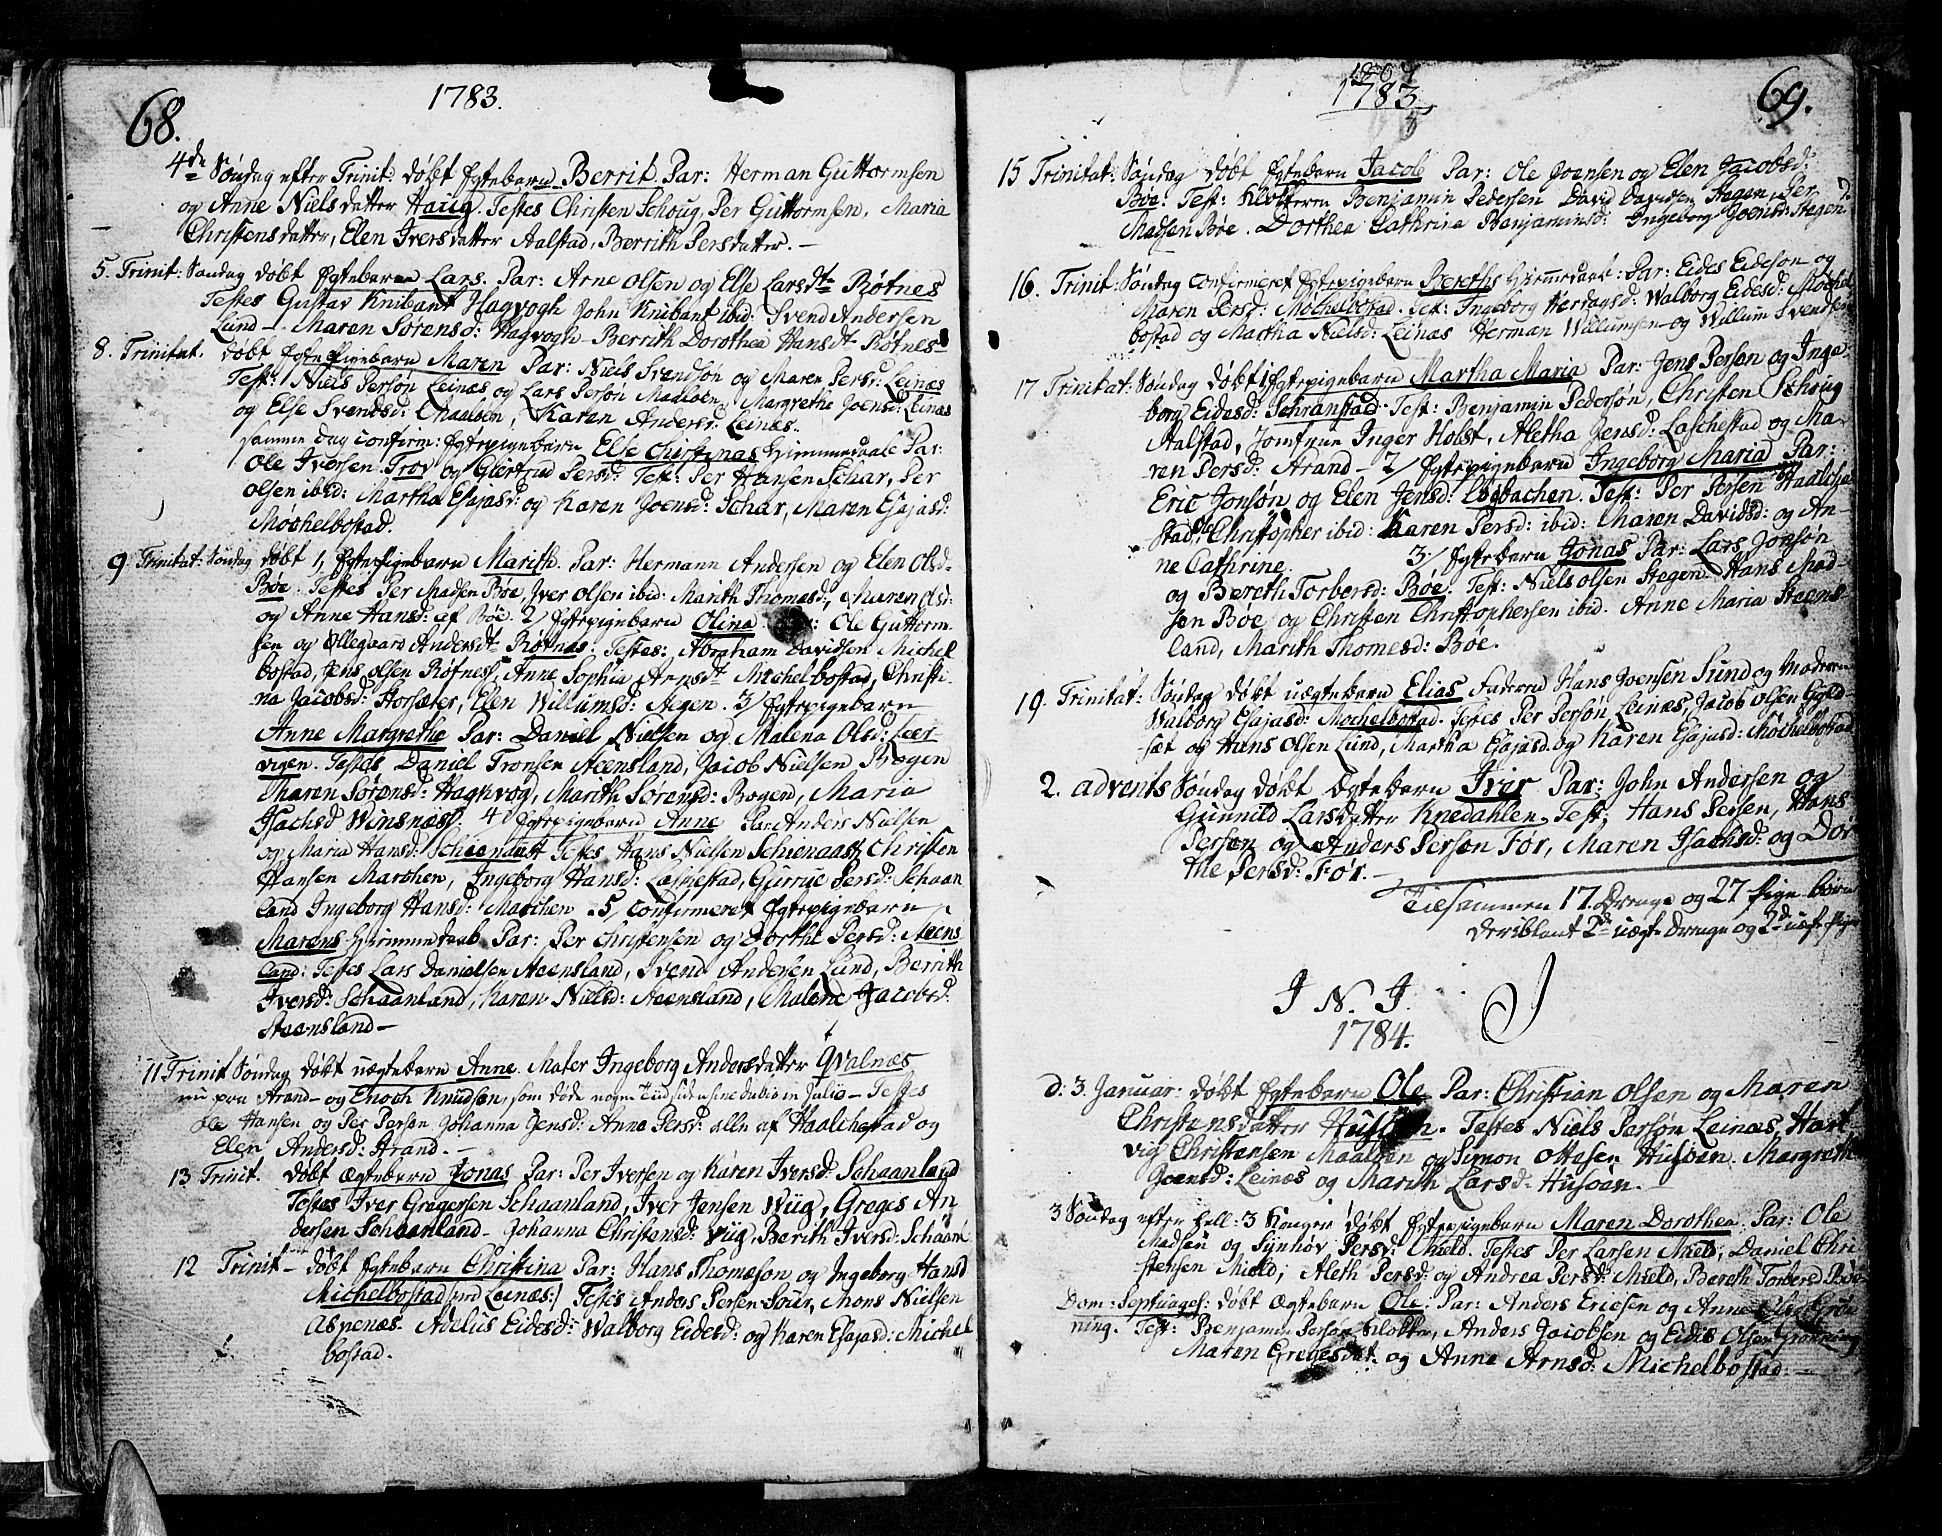 68.
1783.
4de Søndag efter Trinit: døbt Ægtebarn Berrit. Par: Herman Guttormsen
og Anne Nielsdatter Haug. Testes Christen Schoug, Per Guttormsen, Maria
Christensdatter, Elen Iversdatter Aalstad, Berrith Persdatter. —
5. Trinit: Søndag døbt Ægtebarn Lars. Par: Arne Olsen og Else Larsdt Røtnes
Testes Gustav Knibant Hagvogh John Knibant ibid: Svend Andersen
Lund — Maren Sørensd: Hagvogh Berrith Dorothea Hansdt Røtnes
8. Trinitat. døbt Ægtepigebarn Maren Par: Niels Svendsøn og Maren Persd: Leinæs
Test: Niels Persøn Leinæs og Lars Persøn Maaløen, Margrethe Joensd: Leinæs
og Else Svendsd: Maaløen, Karen Andersd: Leinæs.
samme Dag confirm: Ægtepigebarn Else Christinas Hiemmedaab Par:
Ole Iversen Trøv og Giertrud Persd: Test: Per Hansen Schar, Per
Olsen ibid: Martha Esajasd: og Karen Joensd: Schar, Maren Esajasd:
Møchelbostad.
9 Trinitat: Søndag døbt 1, Ægtepigebarn Marith. Par: Hermann Andersen og Elen Olsd
Bøe. Testes Per Madsen Bøe, Iver Olsen ibid: Marith Thomasd:, Maren Olsd:
og Anne Hansd: af Bøe. 2/ Ægtepigebarn Olina Ole Guttorm-
sen og Ollegaard Andersdt Røtnæs. Testes: Abraham Davidsen Michel
bostad, Jens Olsen Røtnes, Anne Sophia Arnsdt Michelbostad, Christi-
na Jacobsd: Horsæter, Elen Willumsd: Stegen. 3/ Ægtepigebarn
Anne Margrethe Par: Daniel Nielsen og Malena Olsd: Leer-
vigen. Testes Daniel Tronsen Steensland, Jacob Nielsen Bogen
Maren Sørensd: Haghvog, Marith Sørensd: Bogen, Maria
Isachsd Wensnæs. 4/ Ægtepigebarn Anne Par: Anders Nielsen
og Maria Hansd: Schienaust Testes Hans Nielsen Schienaast, Christen
Hansen Marchen, Ingeborg Hansd: Laschestad, Gurrue Persd: Schaan
land Ingeborg Hansd: Marchen. 5/ Confirmeret Ægtepigebarn
Marens Hiemmedaab Par: Per Christensen og Dorthe Persd: Steens
land: Testes Lars Danielsen Steensland, Svend Andersen Lund, Berrith
Iversd: Schaanland, Karen Nielsd: Steensland, Malene Jacobsd:
Steensland —
11 Trinit Søndag døbt uægtebarn Anne. Mater Ingeborg Andersdatter Qvalnæs
nu paa Strand — og Enoch Knudsen, som døde nogen Tiid siden Julio — Testes
Ole Hansen og Per Persøn Johanna Jensd: Anne Persd: alle af Haalchestad og
Elen Andersd: Strand. —
13 Trinit. døbt Ægtebarn Jonas Par: Per Iversen og Karen Iversd: Schaanland
Testes Iver Gregersen Schaanland, Iver Jensen Wiig, Greges An
dersen Schaanland — Johanna Christensd: Viig, Berith Iversd: Schaanl
12 Trinit — døbt Ægtebarn Christina Par: Hans Thomesøn og Ingeborg Hansd
Michelbostad Leinæs:/ Testes Anders Persen Sour, Mons Nielsen
Aspenæs. Adelus Eidesd: Walborg Eidesd: og Karen Esajasd: Michel
bostad.
69.
1783
15 Trinitat: Søndag døbt Ægtebarn Jacob Par: Ole Joensen og Elen Jacobsd:
Bøe: Test: Klokkeren Benjamin Pedersen David Davidsen Stegen, Per
Madsen Bøe. Dorthea Cathrina Benjaminsd: Ingeborg Joensd: Stegen
16. Trinit: Søndag confirmeret Ægtepigebarn Bereths Hiemmedaab: Par: Eides Eidesøn og
Maren Persd: Møchelbostad. Test: Ingeborg Herdagsd: Walborg Eidesd: Møchel
bostad og Martha Nielsd: Leinæs Herman Willumsen og Willum Svendsen
17 Trinitat: Søndag døbt 1/ Ægtepigebarn Martha Maria Par: Jens Persen og Inge
borg Eidesd: Schranstad. Test: Benjamin Pedersøn, Christen Schoug
Aalstad, Jomfrue Inger Holst, Aletha Jensd: Laschestad og Ma-
ren Persd: Strand — 2/ Ægtepigebarn Ingeborg Maria Par:
Eric Jonsøn og Elen Jensd: Løgbachen. Test: Per Persen Haalche
stad, Ole Christopher ibid: Karen Persd: ibid: Maren Davidsd: og An-
ne Cathrine. 3/ Ægtebarn Jonas Par: Lars Jonsøn
og Bereth Torbersd: Bøe. Test: Niels Olsen Stegen. Hans Mad-
sen Bøe og Christen Christophersen ibid. Anne Maria Steens-
land, Marith Thomesd: Bøe.
19. Trinitat: Søndag døbt uægtebarn Elias Faderen Hans Joensen Sund og Moderen
Walborg Esajasd: Møchelbostad. Testes Per Persøn Leinæs, Jacob Olsen
og Hans Olsen Lund, Martha Esajasd: og Karen Esajasd: Møchelbostad
2. Advents Søndag døbt Ægtebarn Iver Par: John Andersen og
Gunnild Larsdatter Knedahlen. Test: Hans Persen, Hans
Persøn og Anders Persøn Før, Maren Isachsd: og Dor
the Persd: Før. —
Tilsammen 17. Drenge og 27 Pige børn
deriblant 2de uægte Drenge og 2de uægte Piger
I N. J.
1784.
d: 3. Januar: døbt Ægtebarn Ole Par: Christian Olsen og Maren
Christensdatter Husøen. Testes Niels Persøn Leinæs, Hart
vig Christensen Maaløen og Simon Ottesen Husøen. Margreth
Joensd: Leinæs og Marith Larsd: Husøen. —
3 Søndag efter hell: 3 Konger døbt Ægtepigebarn Maren Dorothea. Par: Ole
Madsen og Synnøv Persd: Mield. Testes Per Larsen Mield, Daniel Chri
stensen Mield, Aleth Persd: og Andrea Persd: Mield, Bereth Torbersd
Dom: Septuages: døbt Ægtebarn Ole. Par: Anders Ericsen og Anne Olsd Grøn
ning. Test: Benjamin Persøn Klokker, Anders Jacobsen og Eidis Olsen Grønning
Maren Gregesdt: og Anne Arnsd: Michelbostad. —